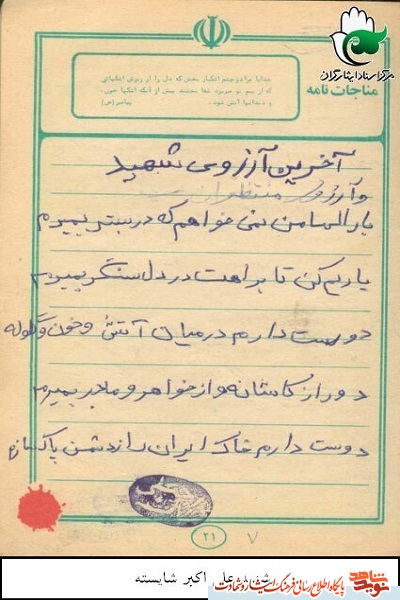 مرکز اسناد ایثارگران
مناجات نامه
خدایا مرا دو چشم اشکبار بخش که دل را از ریزش اشکهائی
که از بیم تو میریزد شفا بخشند پیش از آنکه اشکها خون،
و دندانها آتش شود.
پیامبر (ص)
آخرین آرزوی شهید
و آرزوی منتظران
بارالها من نمی خواهم که در بستر بمیرم
یاریم کن تا براهت در دل سنگر بمیرم
دوست دارم در میان آتش و خون و گلوله
دور از کاشانه و از خواهر و مادر بمیرم
دوست دارم خاک ایران را از دشمن پاکسازم
۲۱
۷
علی اکبر شایسته
نوید شاهد
پایگاه اطلاع رسانی فرهنگ ایثار و شهادت